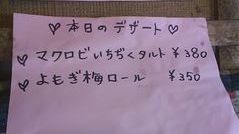 ♡ 本日のデザート ♡
♡ マクロビいちぢくタルト ¥380
♡ よもぎ梅ロール ¥350